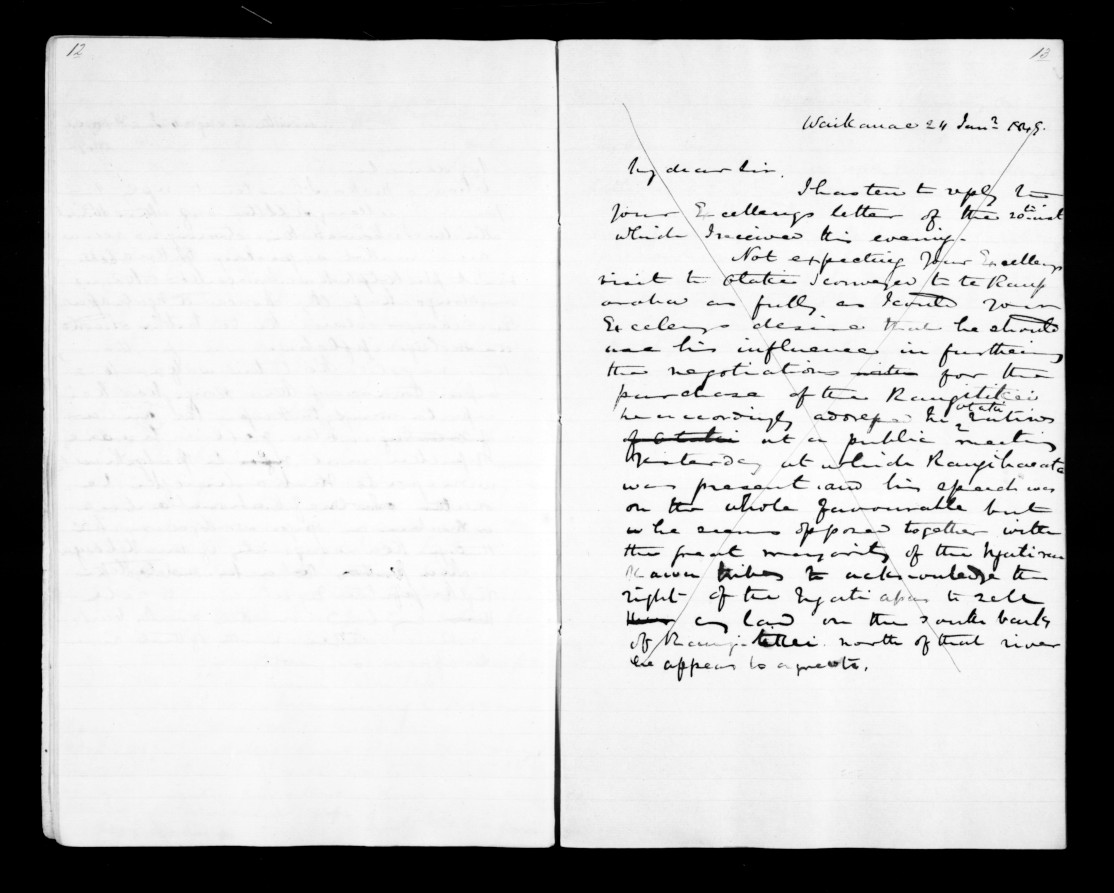 12
13
Waikanae 24 Jany 1849.
My dear Sir,
I hasten to reply to
your Excellency's letter of the 20th inst
which I received this evening.
Not expecting your Excellency's
visit to Otaki I conveyed to te Raup
araha as fully as I could your
Excellency's desire that he should
use his influence in furthering
the negotiations for the
purchase of the Rangitikei
he accordingly addressed the Otaki natives
of Otaki at a public meeting
yesterday at which Rangihaeata
was present and his speech was
on the whole favourable but
he seems opposed together with
the great majority of the Ngatirau
kawa tribes to acknowledge the
right of the Ngatiapa to sell
any land on the south bank
of Rangitikei north of that river
he appears to agree to.